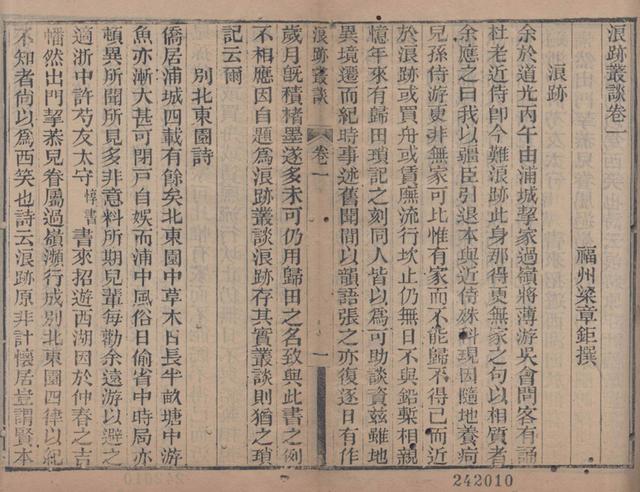 浪跡叢談卷一
福州梁章鉅撰
浪跡
余於道光丙午由浦城挈家過嶺將薄游吳會問客有誦
杜老近侍卽今難浪跡此身那得更無家之句以相質者
余應之曰我以疆臣引退本與近侍殊科現因隨地養痾
兒孫侍游更非無家可比惟有家而不能歸不得已而近
於浪跡或買舟或賃廡流行坎止仍無日不與鉛槧相親
憶年來有歸田瑣記之刻同人皆以爲可助談資茲雖地
異境遷而紀時事述舊聞間以韻語張之亦復逐日有作
浪跡叢談
卷一
一
歲月旣積楮墨遂多未可仍用歸田之名致與此書之例
不相應因自題爲浪跡叢談浪跡存其實叢談則猶之瑣
記云爾
別北東園詩
僑居浦城四載有餘矣北東園中草木日長半畝塘中游
魚亦漸大甚可閉戶自娱而浦中風俗日偷省中時局亦
頓異所聞所見多非意料所期兒輩每勸余遠游以避之
適浙中許芍友太守惇書書來招遊西湖因於仲春之吉
幡然出門挈恭兒眷屬過嶺瀕行成別北東園四律以紀
不知者尙以爲西笑也詩云浪跡原非計懷居豈謂賢本
242010